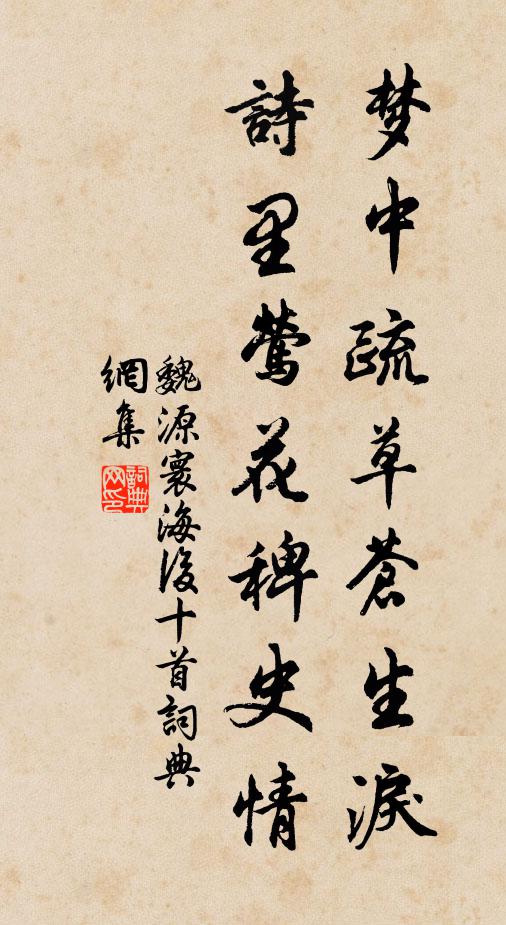 梦中疏草蒼生淚
詩里鶯花稗史情
魏源寰海後十首詞典
網集
詞典網印